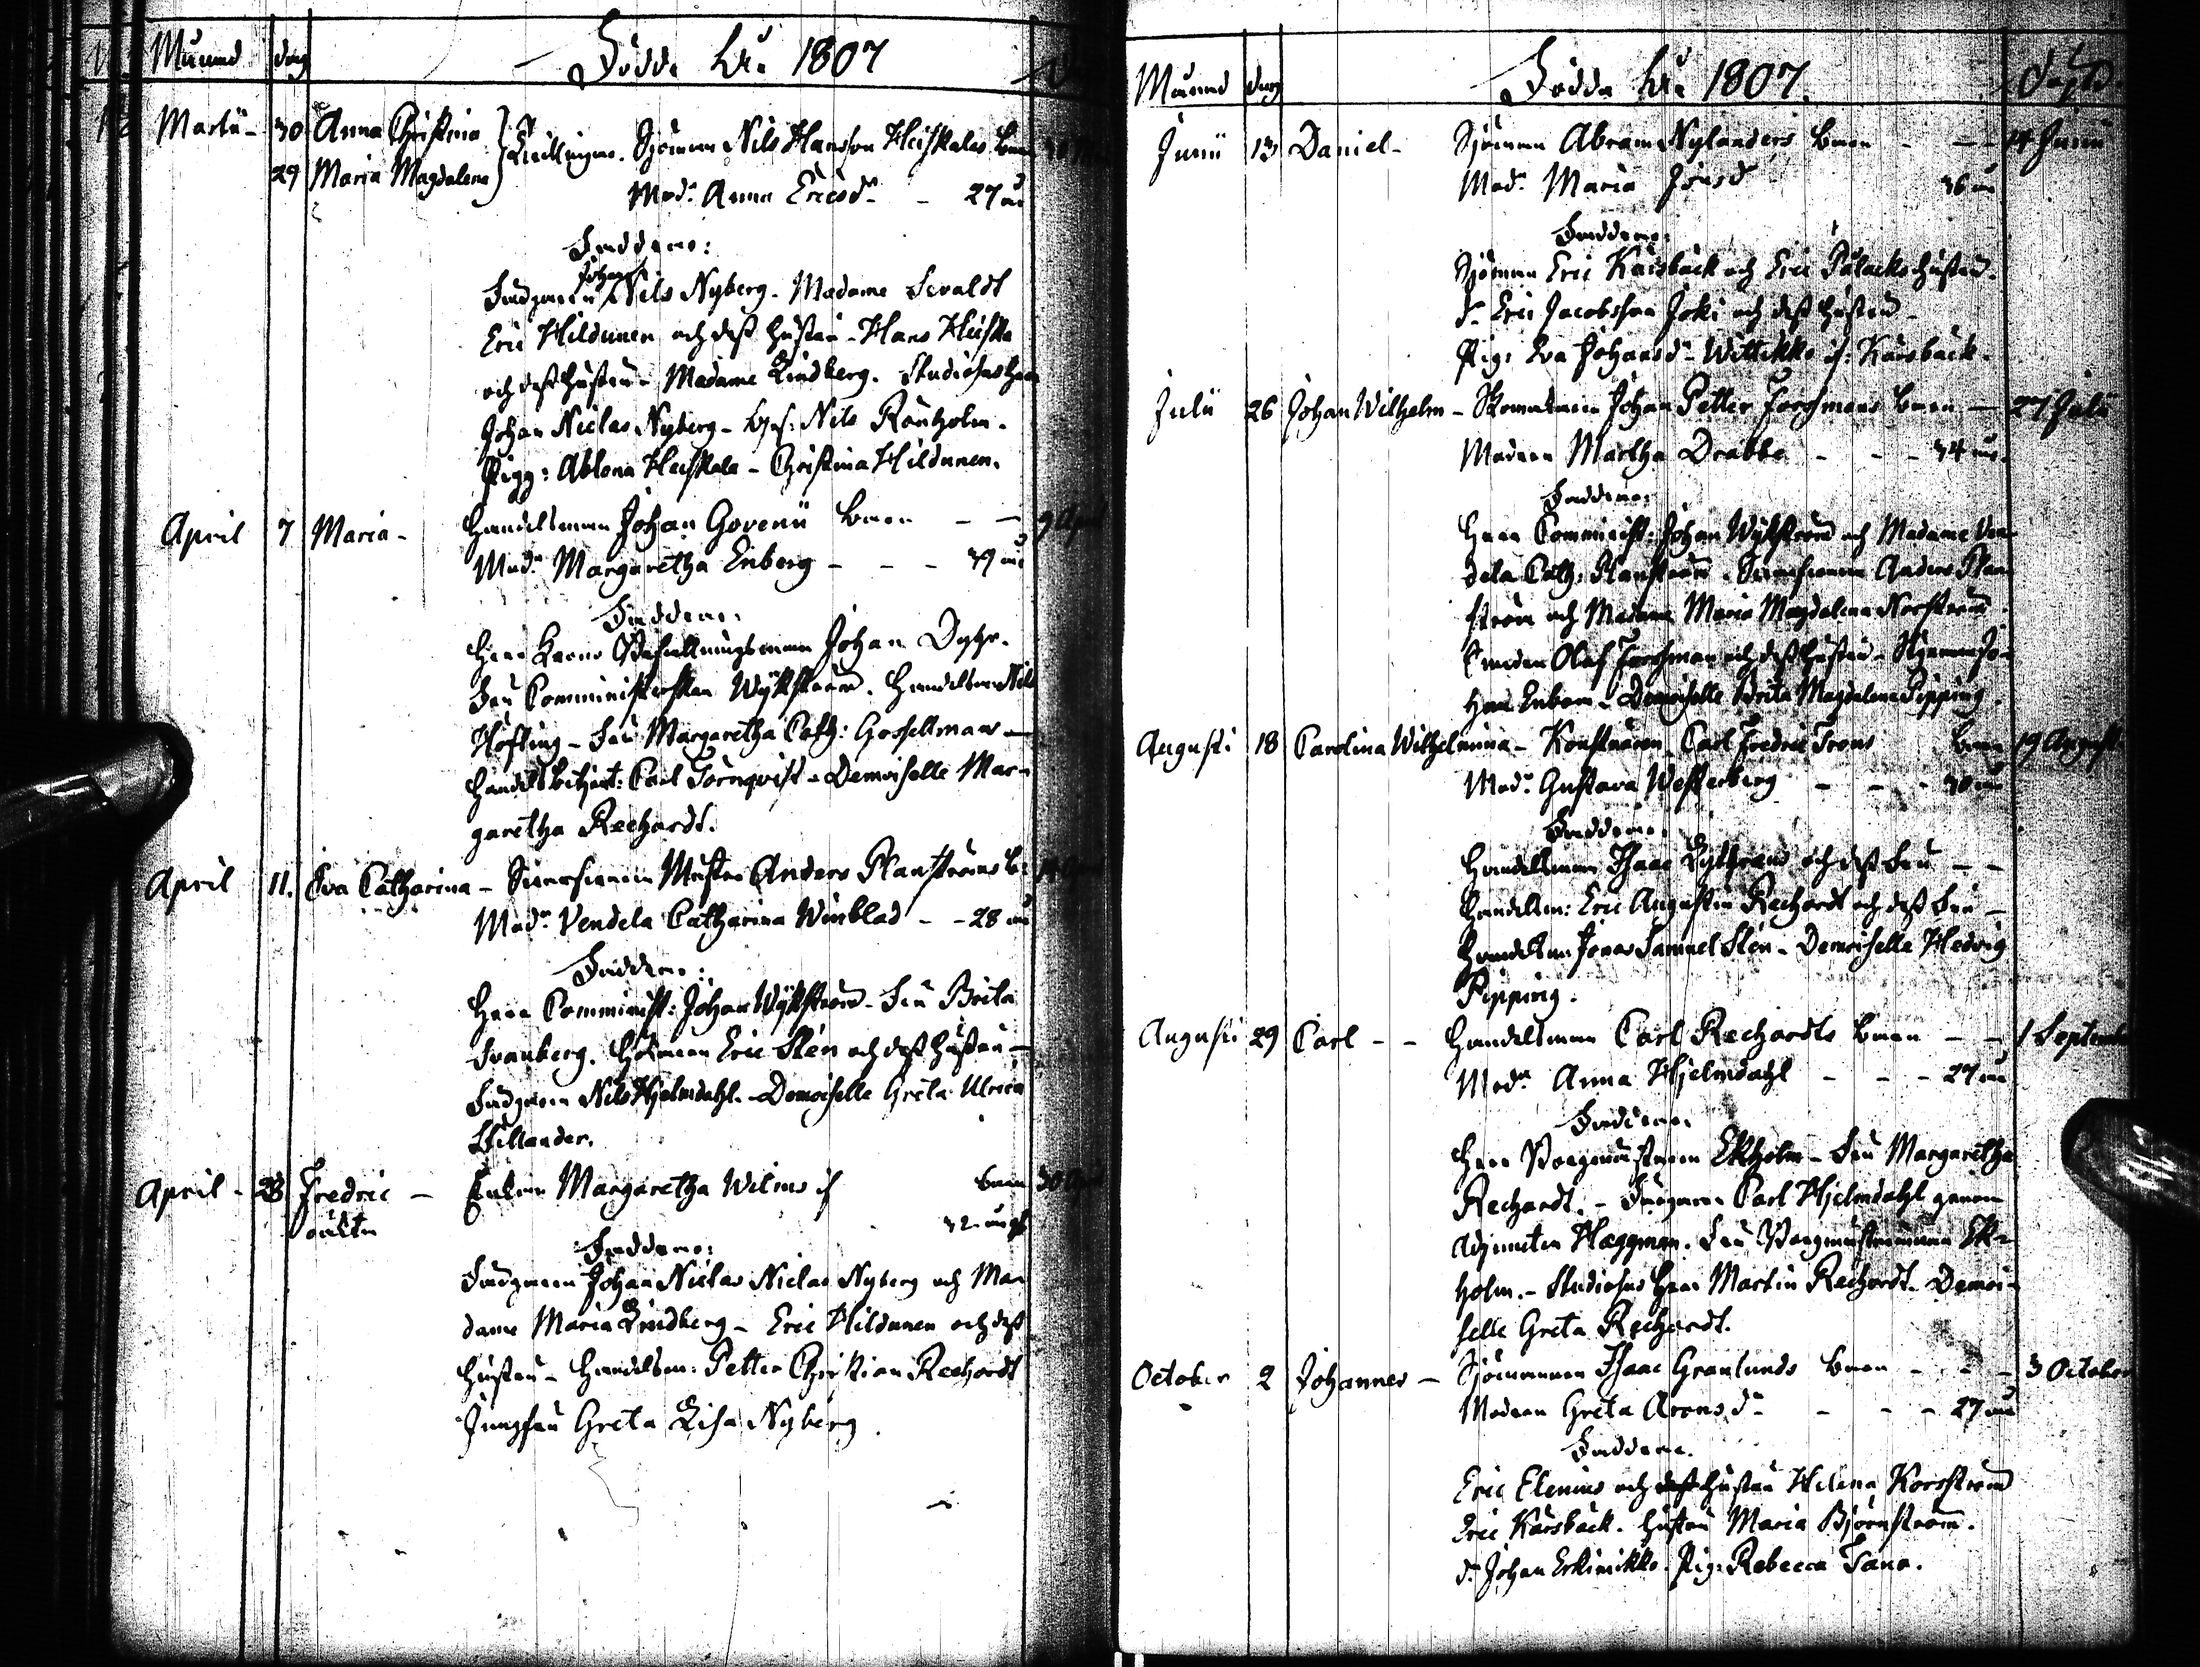 Månad dag Födde År 1807
Martii - 30 Anna Christina
29 Maria Magdalena
Tvillingar. Sjöman Nils Hansson Heiskalas barn
Mod: Anna Ericsd:r - 27 år
Faddrar:
Johan
Nils Nyberg. Madame
Eric Hildunen och dess hustru - Hans Heiska
och dess hustru - Madame Lindberg. Studiosus Herr
Johan Niclas Nyberg - Nils Rönholm.
Pig: Ablona Heiskala - Christina Hildunen.
April 7 Maria - Handelsman Johan Govenii barn - - 9 April
Mod:r Margaretha Enberg - - - 39 år
Faddrar:
Herr Krono Befallningsman Johan Dyhr.
Fru Comministerskan Wijkström. Handelsman Nils
Höfling - Fru Margaretha Cath: Gosselman -
Handelsbetjent: Carl Törnqvist - Demoiselle Mar-
garetha Rechardt.
April 11. Eva Catharina - Mäster Anders Planströms b:
Mod:r Vendela Catharina Winblad - - 28 år
Faddrar:
Herr Comminist: Johan Wijkström - Fru Brita
Svanberg. Eric Stén och dess hustru -
Nils Hjelmdahl. - Demoiselle Greta Ulrica
April - 28 Fredric - Enkan Margaretha Wilms barn 30 April
oäkta 32 år
Faddrar:
Johan Niclas Niclas Nyberg och Ma-
dame Maria Lindberg - Eric Hildunen och dess
hustru - Handelsm: Petter Christian Rechardt
Jungfru Greta Lisa Nyberg.
Månad dag Födda År 1807. Döpte.
Junii 13 Daniel - Sjöman Abram Nylanders barn - - 14 Junii
Mod:r Maria 36 år
Faddrar:
Sjöman Eric Karsbäck och Eric hustru.
d:o Eric Jacobsson Joki och dess hustru -
Pig: Eva Johansd:r Wittikko Karsbäck.
Julii 26 Johan Wilhelm - Skomakaren Johan Petter Forsmans barn - 27 Julii
Modren Martha Drabbe - - - 34 år.
Faddrar:
Herr Comminist: Johan Wijkström och Madame Ven-
dela Cath: Planström. Anders Plan-
ström och Madame Maria Magdalena Norström.
Olof Forsman och dess hustru - Jo-
han Enbom - Demoiselle Brita Magdalena Pipping.
Augusti 18 Carolina Wilhelmina - Carl Fredric barn 19 Augusti
Mod:r Gustava Westerberg - - - 30 år
Faddrar:
Handelsman Isaac och dess Fru - -
Handelsm: Eric Augustin Rechardt och dess Fru -
Handelsm: Jonas Samuel Stén - Demoiselle Hedvig
Pipping.
Augusti 29 Carl - - Handelsman Carl Rechardts barn - - 1 September
Mod:r Anna Hjelmdahl - - - 27 år
Faddrar:
Herr Borgmästaren Ekholm - Fru Margaretha
Rechardt. - Carl Hjelmdahl genom
Adjuncten Hæggman. Fru Borgmästarinnan Ek-
holm. - Studiosus Herr Martin Rechardt. Demoi-
selle Greta Rechardt.
October 2 Johannes - Sjömannen Isaac Granlunds barn - - - 3 October
Modren Greta Aronsd:r - - - 27 år
Faddrar.
Eric Elenius och hustru Helena Korsström
Eric Karsbäck. hustru Maria Björnström.
d:o Johan Erkinikko. Pig: Rebecca